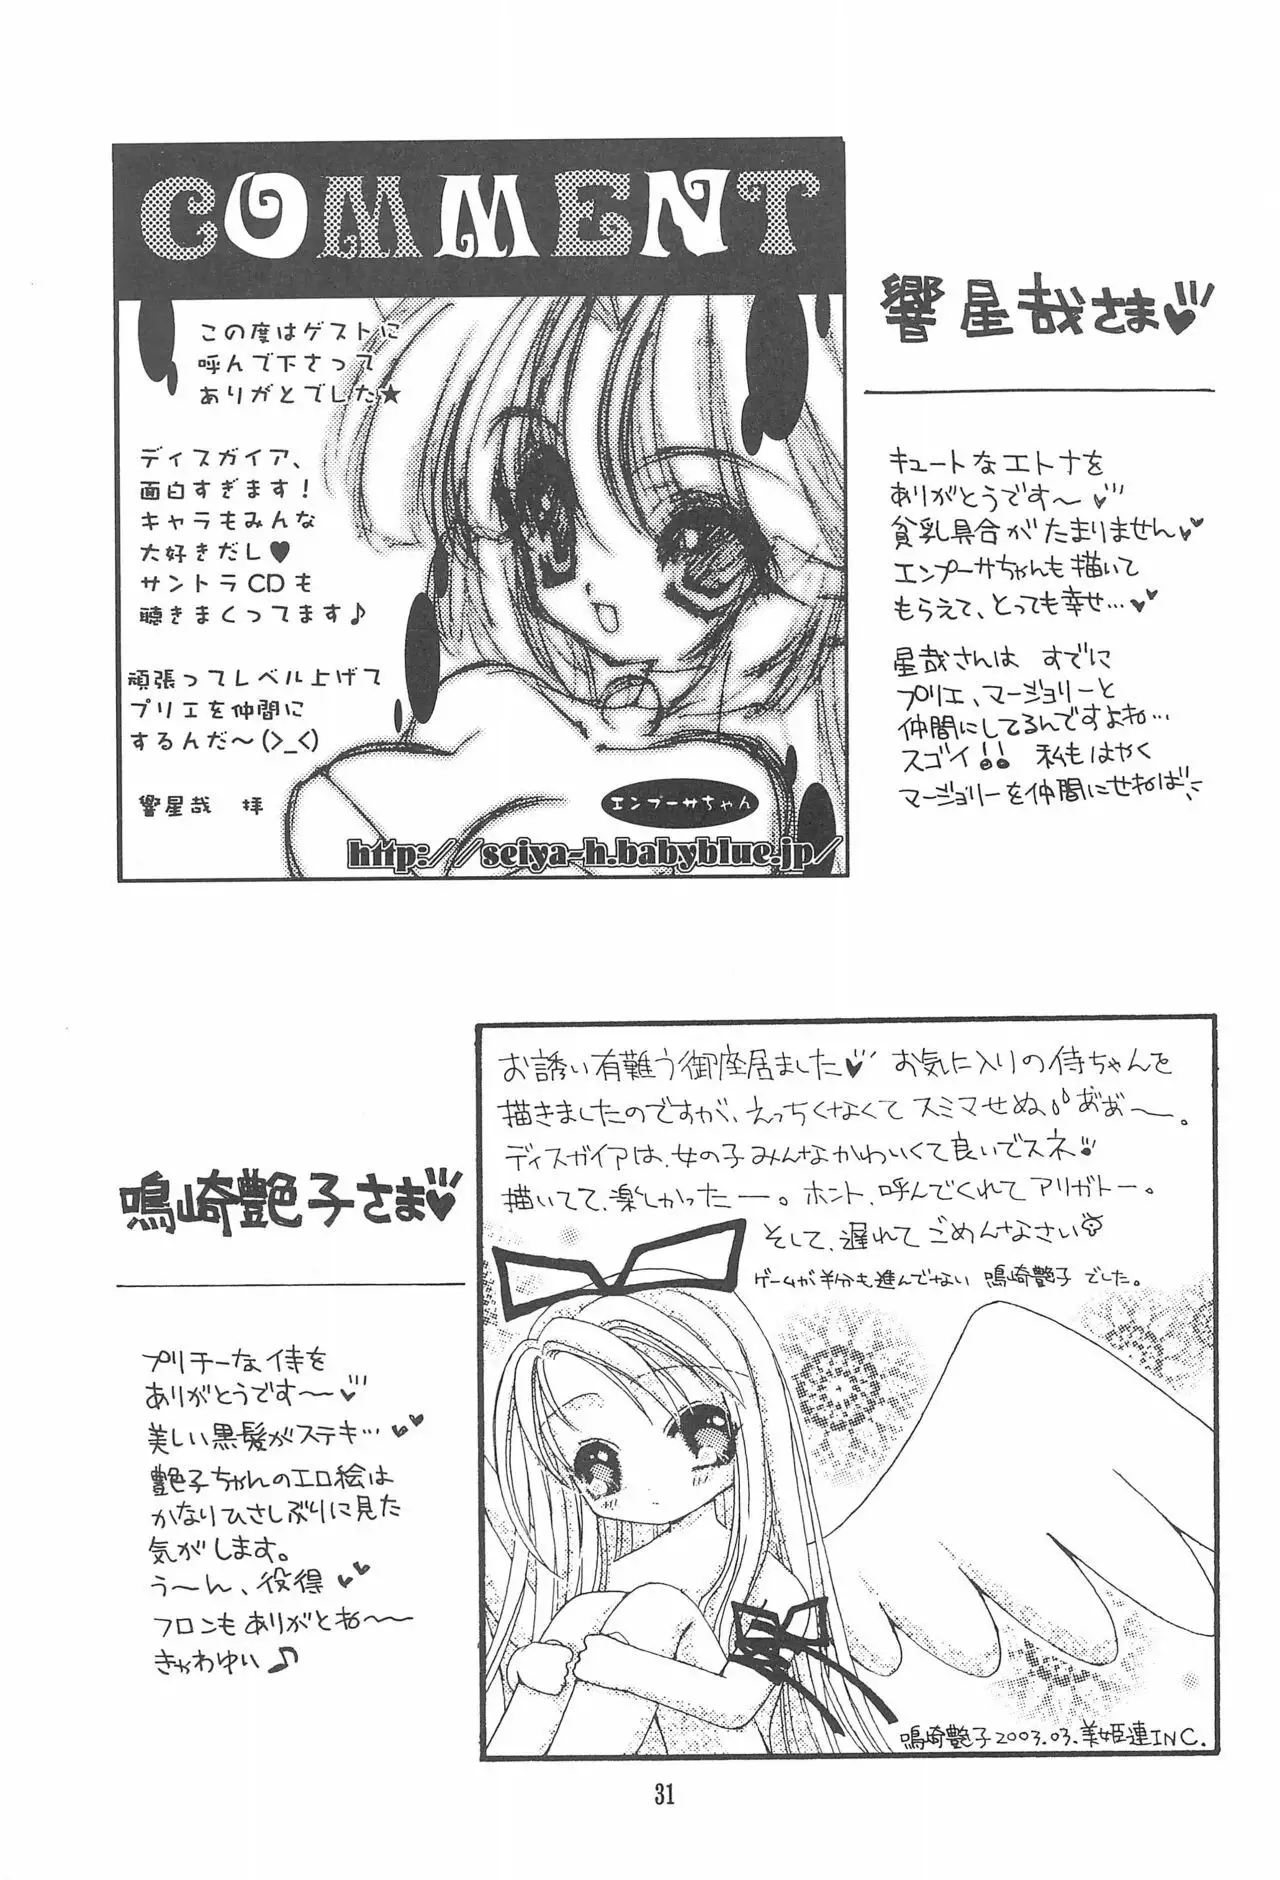 COMMENT
この度はゲストに
呼んで下さって
ありがとでした★
ディスガイア、
面白すぎます!
キャラもみんな
大好きだし♥
サントラCDも
聴きまくってます♪
頑張ってレベル上げて
プリエを仲間に
するんだ〜(>_<)
響星哉 拝
エンプーサちゃん
http://seiya-h.babyblue.jp/
響星哉さま♥
キュートなエトナを
ありがとうです〜♥
貧乳具合がたまりません♥
エンプーサちゃんも描いて
もらえて、とっても幸せ…♥
星哉さんは すでに
プリエ、マージョリーと
仲間にしてるんですよね…
スゴイ!! 私もはやく
マージョリーを仲間にせねば
お誘い有難う御座居ました♥ お気に入りの侍ちゃんを
描きましたのですが、えっちくなくてスミマせぬ、あぁ〜。
ディスガイアは、女の子みんなかわいくて良いでスネ
描いてて、楽しかったー。ホント、呼んでくれてアリガトー。
そして、遅れてごめんなさい
ゲームが半分も進んでない 鳴崎艶子でした。
鳴崎艶子2003.03.美姫連INC.
鳴崎艶子さま♥
プリチーな侍を
ありがとうです〜♥
美しい黒髪がステキ…♥
艶子ちゃんのエロ絵は
かなりひさしぶりに見た
気がします。
う〜ん、役得♥
フロンもありがとね〜
きゃわゆい♪
31